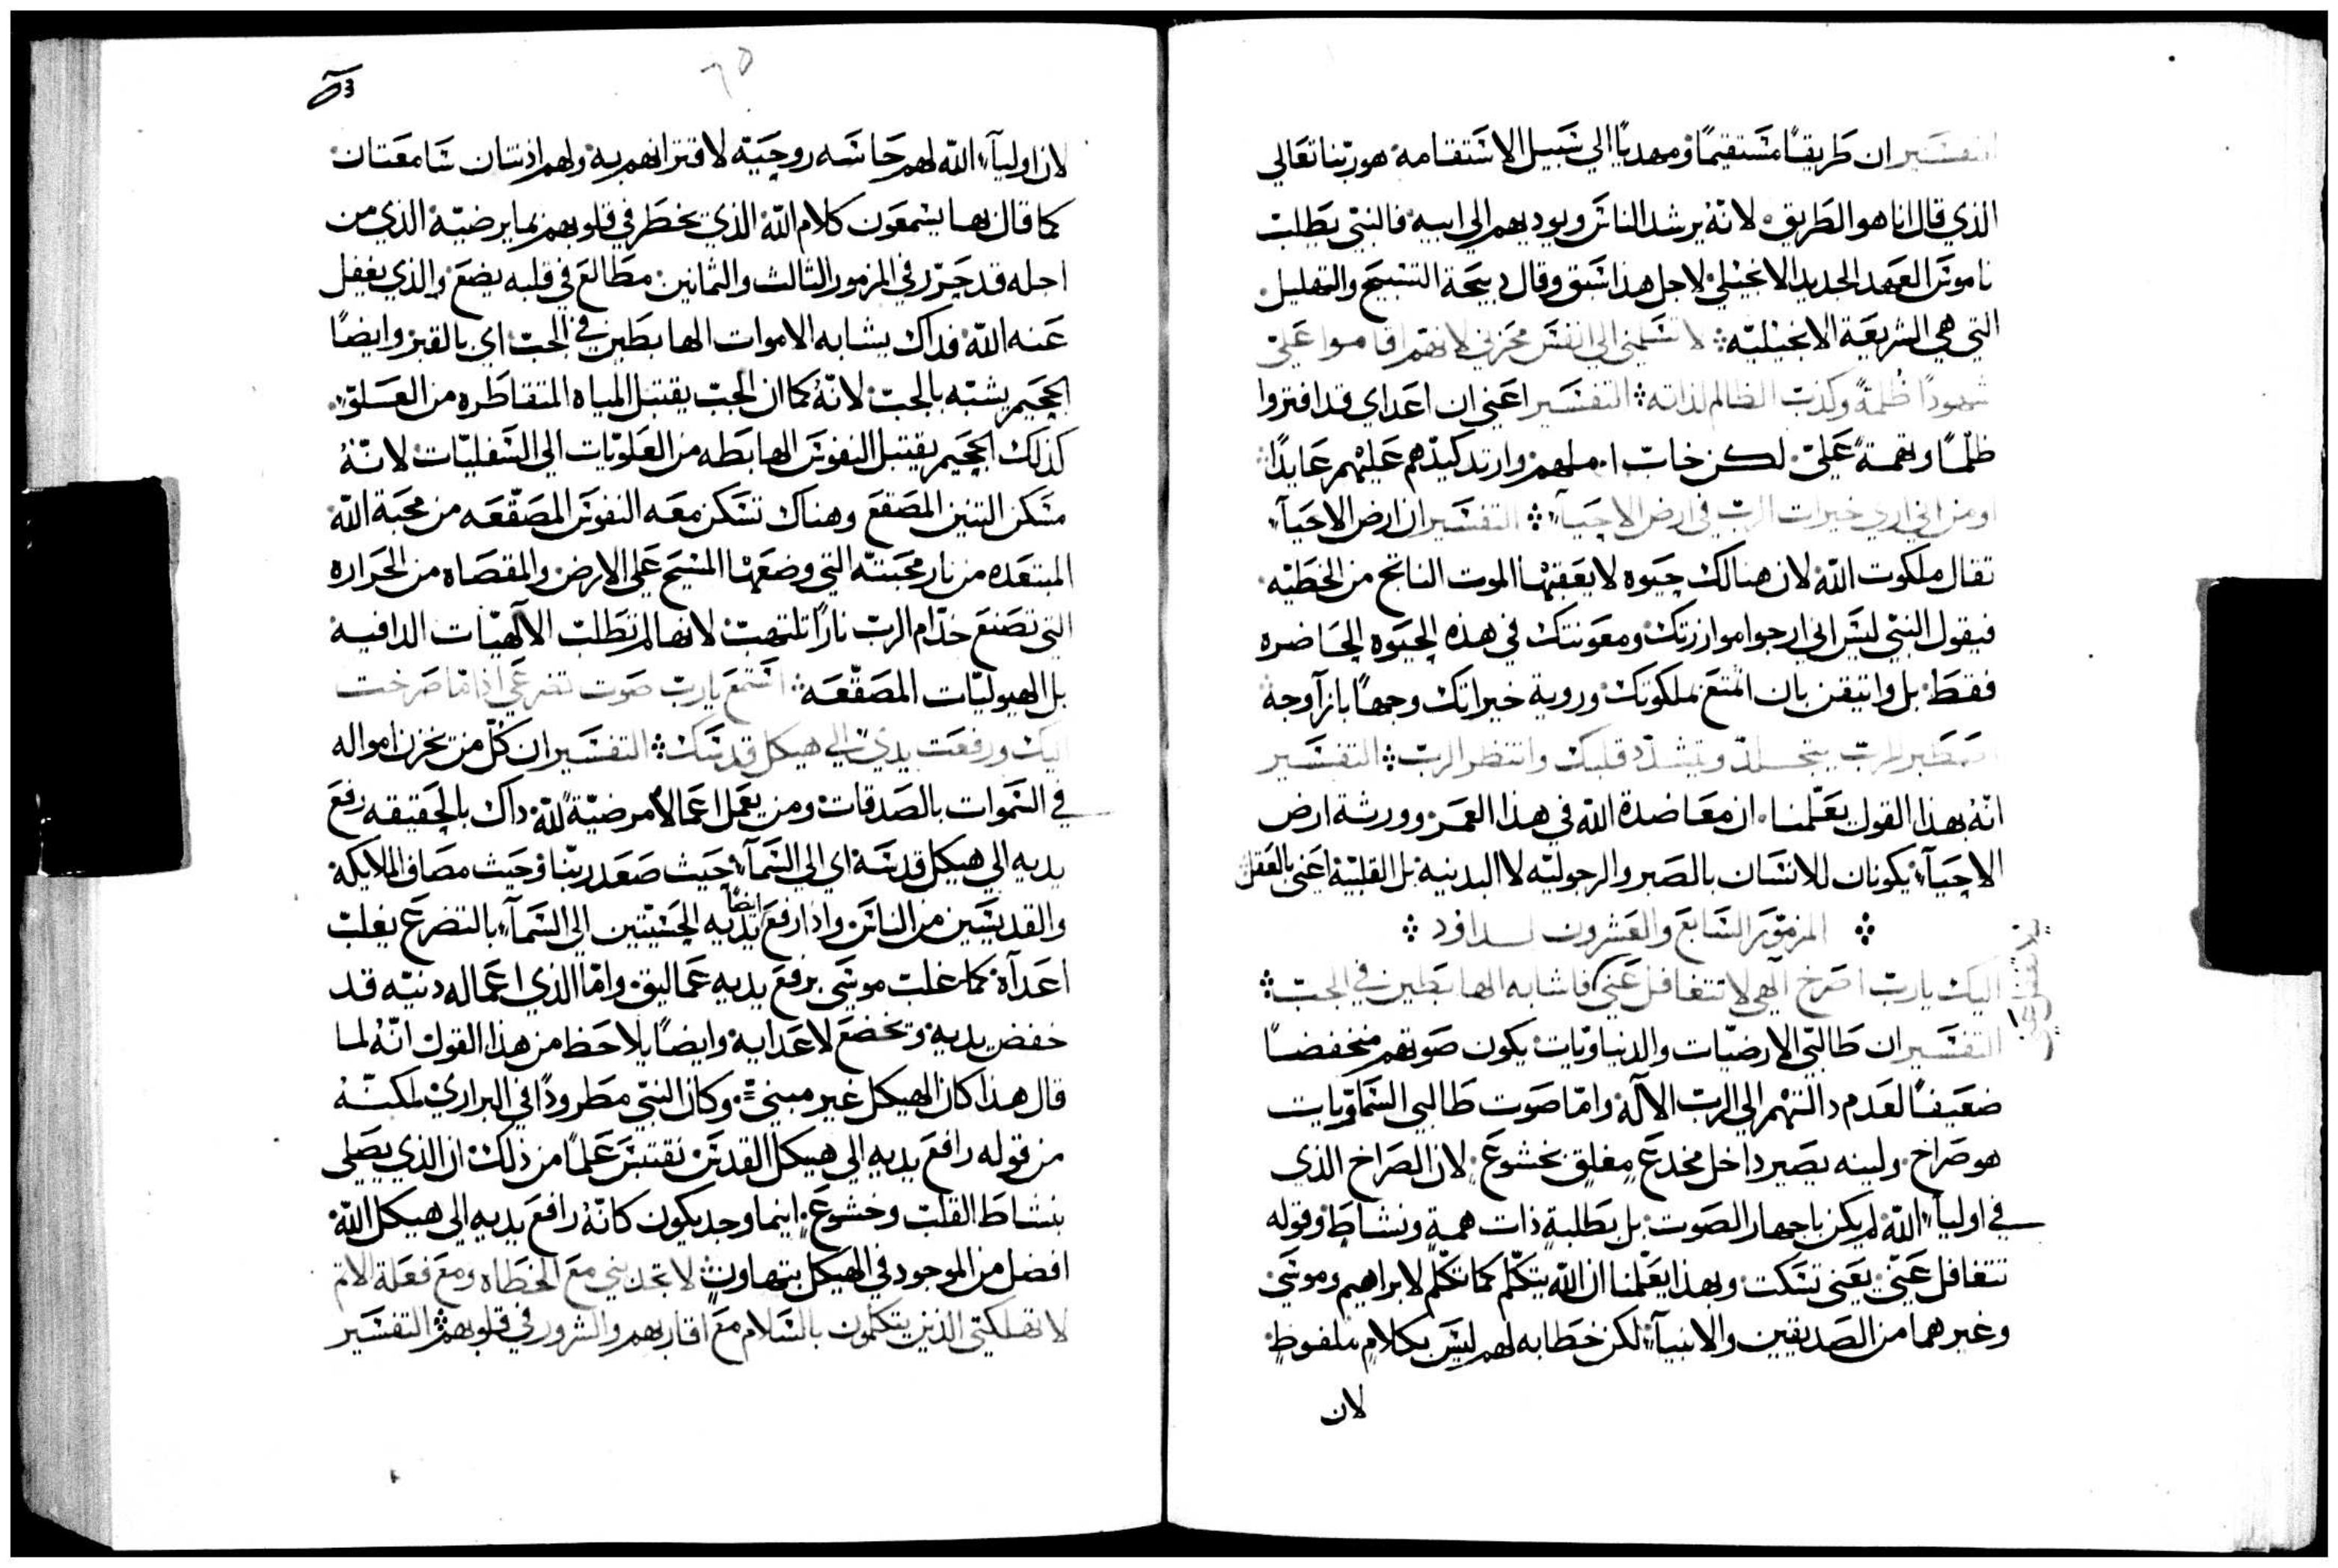 التفسير ان طريقًا مستقيمًا ومهديًا الي سبيل الاستقامه هو ربنا تعالي
الذي قال انا هو الطريق لانه يرشد الناس ويوديهم الي ابيه فالنبي يطلب
ناموس العهد الجديد الانجيلي لاجل هذا سبق وقال دبيحة التسبيح والتهليل
التي هي الشريعة الانجيليه لا تسلمني الي انفس محزني لانهم اقاموا علي
شهودًا ظلمةً وكذب الظالم لذاته التفسير اعني ان اعداي قد افتروا
ظلمًا وتهمةً علي لكن خاب املهم وارتد كيدهم عليهم عايدًا
اومن اني اري خيرات الرب في ارض الاحيآء التفسير ان ارض الاحيآء
تقال ملكوت الله لان هنالك حيوه لا يعقبها الموت الناتج من الخطيه
فيقول النبي ليس اني ارجوا موازرتك ومعونتك في هذه الحيوه الحاضره
فقط بل واتيقن بان اتمتع بملكوتك وروية خيراتك وجهًا بازآ وجه
اصطبر للرب يتجلد ويتشدد قلبك وانتظر الرب التفسير
انه بهذا القول يعلمنا ان معاضدة الله في هذا العمر وورثة ارض
الاحيآء يكونان للانسان بالصبر والرجوليه لا البدنيه بل القلبيه اعني بالعقل
المزمور السابع والعشرون لداود
اليك يارب اصرخ الهي لا تتغافل عني فاشابه الهابطين في الجب
التفسير ان طالبي الارضيات والدنياويات يكون صوتهم منخفضًا
ضعيفًا لعدم دالتهم الي الرب الاله واما صوت طالبي السماويات
هو صراخ ولينه يصير داخل مخدع مغلق بخشوع لان الصراخ الذي
في اوليآء الله لم يكن باجهار الصوت بل بطلبة ذات همة ونشاط وقوله
تتغافل عني يعني تسكت وبهذا يعلمنا ان الله يتكلم كما تكلم لابراهيم وموسي
وغيرهما من الصديقين والانبيآء لكن خطابه لهم ليس بكلام ملفوظ
لان
لان اوليآء الله لهم حاسه روحيه لاقترانهم به ولهم اذنان سامعتان
كما قال بها يسمعون كلام الله الذي يخطر في قلوبهم بما يرضيه الذي من
اجله قد حرر في المزمور الثالث والثمانين مطالع في قلبه يضع والذي يغفل
عنه الله فداك يشابه الاموات الهابطين في الجب اي بالقبر وايضًا
الجحيم يشبه بالجب لانه كما ان الجب يقتبل المياه المتقاطره من العلو
كذلك الجحيم يقتبل النفوس الهابطه من العلويات الي السفليات لانه
مسكن التنين المصقع وهناك تسكن معه النفوس المصقعه من محبة الله
المبتعده من نار محبته التي وضعها المسيح علي الارض والمقصاه من الحراره
التي تصنع خدام الرب نارًا تلتهب لانها لم تطلب الالهيات الدافيه
بل الهيوليات المصقعه استمع يارب صوت تضرعي اذا ما صرخت
اليك ورفعت يدي الي هيكل قدسك التفسير ان كل من يخزن امواله
في السموات بالصدقات ومن يعمل اعمالًا مرضيةً لله داك بالحقيقه رفع
يديه الي هيكل قدسه اي الي السمآء حيث صعد ربنا وحيث مصاف الملايكه
والقديسين من الناس واذا رفع ايضًا يديه الحسيتين الي السمآء بالتضرع يغلب
اعدآه كما غلب موسي برفع يديه عماليق واما الذي اعماله دنيه قد
خفض يديه وتخضع لاعدايه وايضًا يلاحظ من هذا القول انه لما
قال هذا كان الهيكل غير مبني وكان النبي مطرودًا في البراري لكنه
من قوله رافع يديه الي هيكل القدس نقتبس علمًا من ذلك ان الذي يصلي
بنشاط القلب وخشوع اينما وجد يكون كانه رافع يديه الي هيكل الله
افضل من الموجود في الهيكل بتهاون لا تجذبني مع الخطاه ومع فعلة الاثم
لا تهلكني الذين يتكلمون بالسلام مع اقاربهم والشرور في قلوبهم التفسير